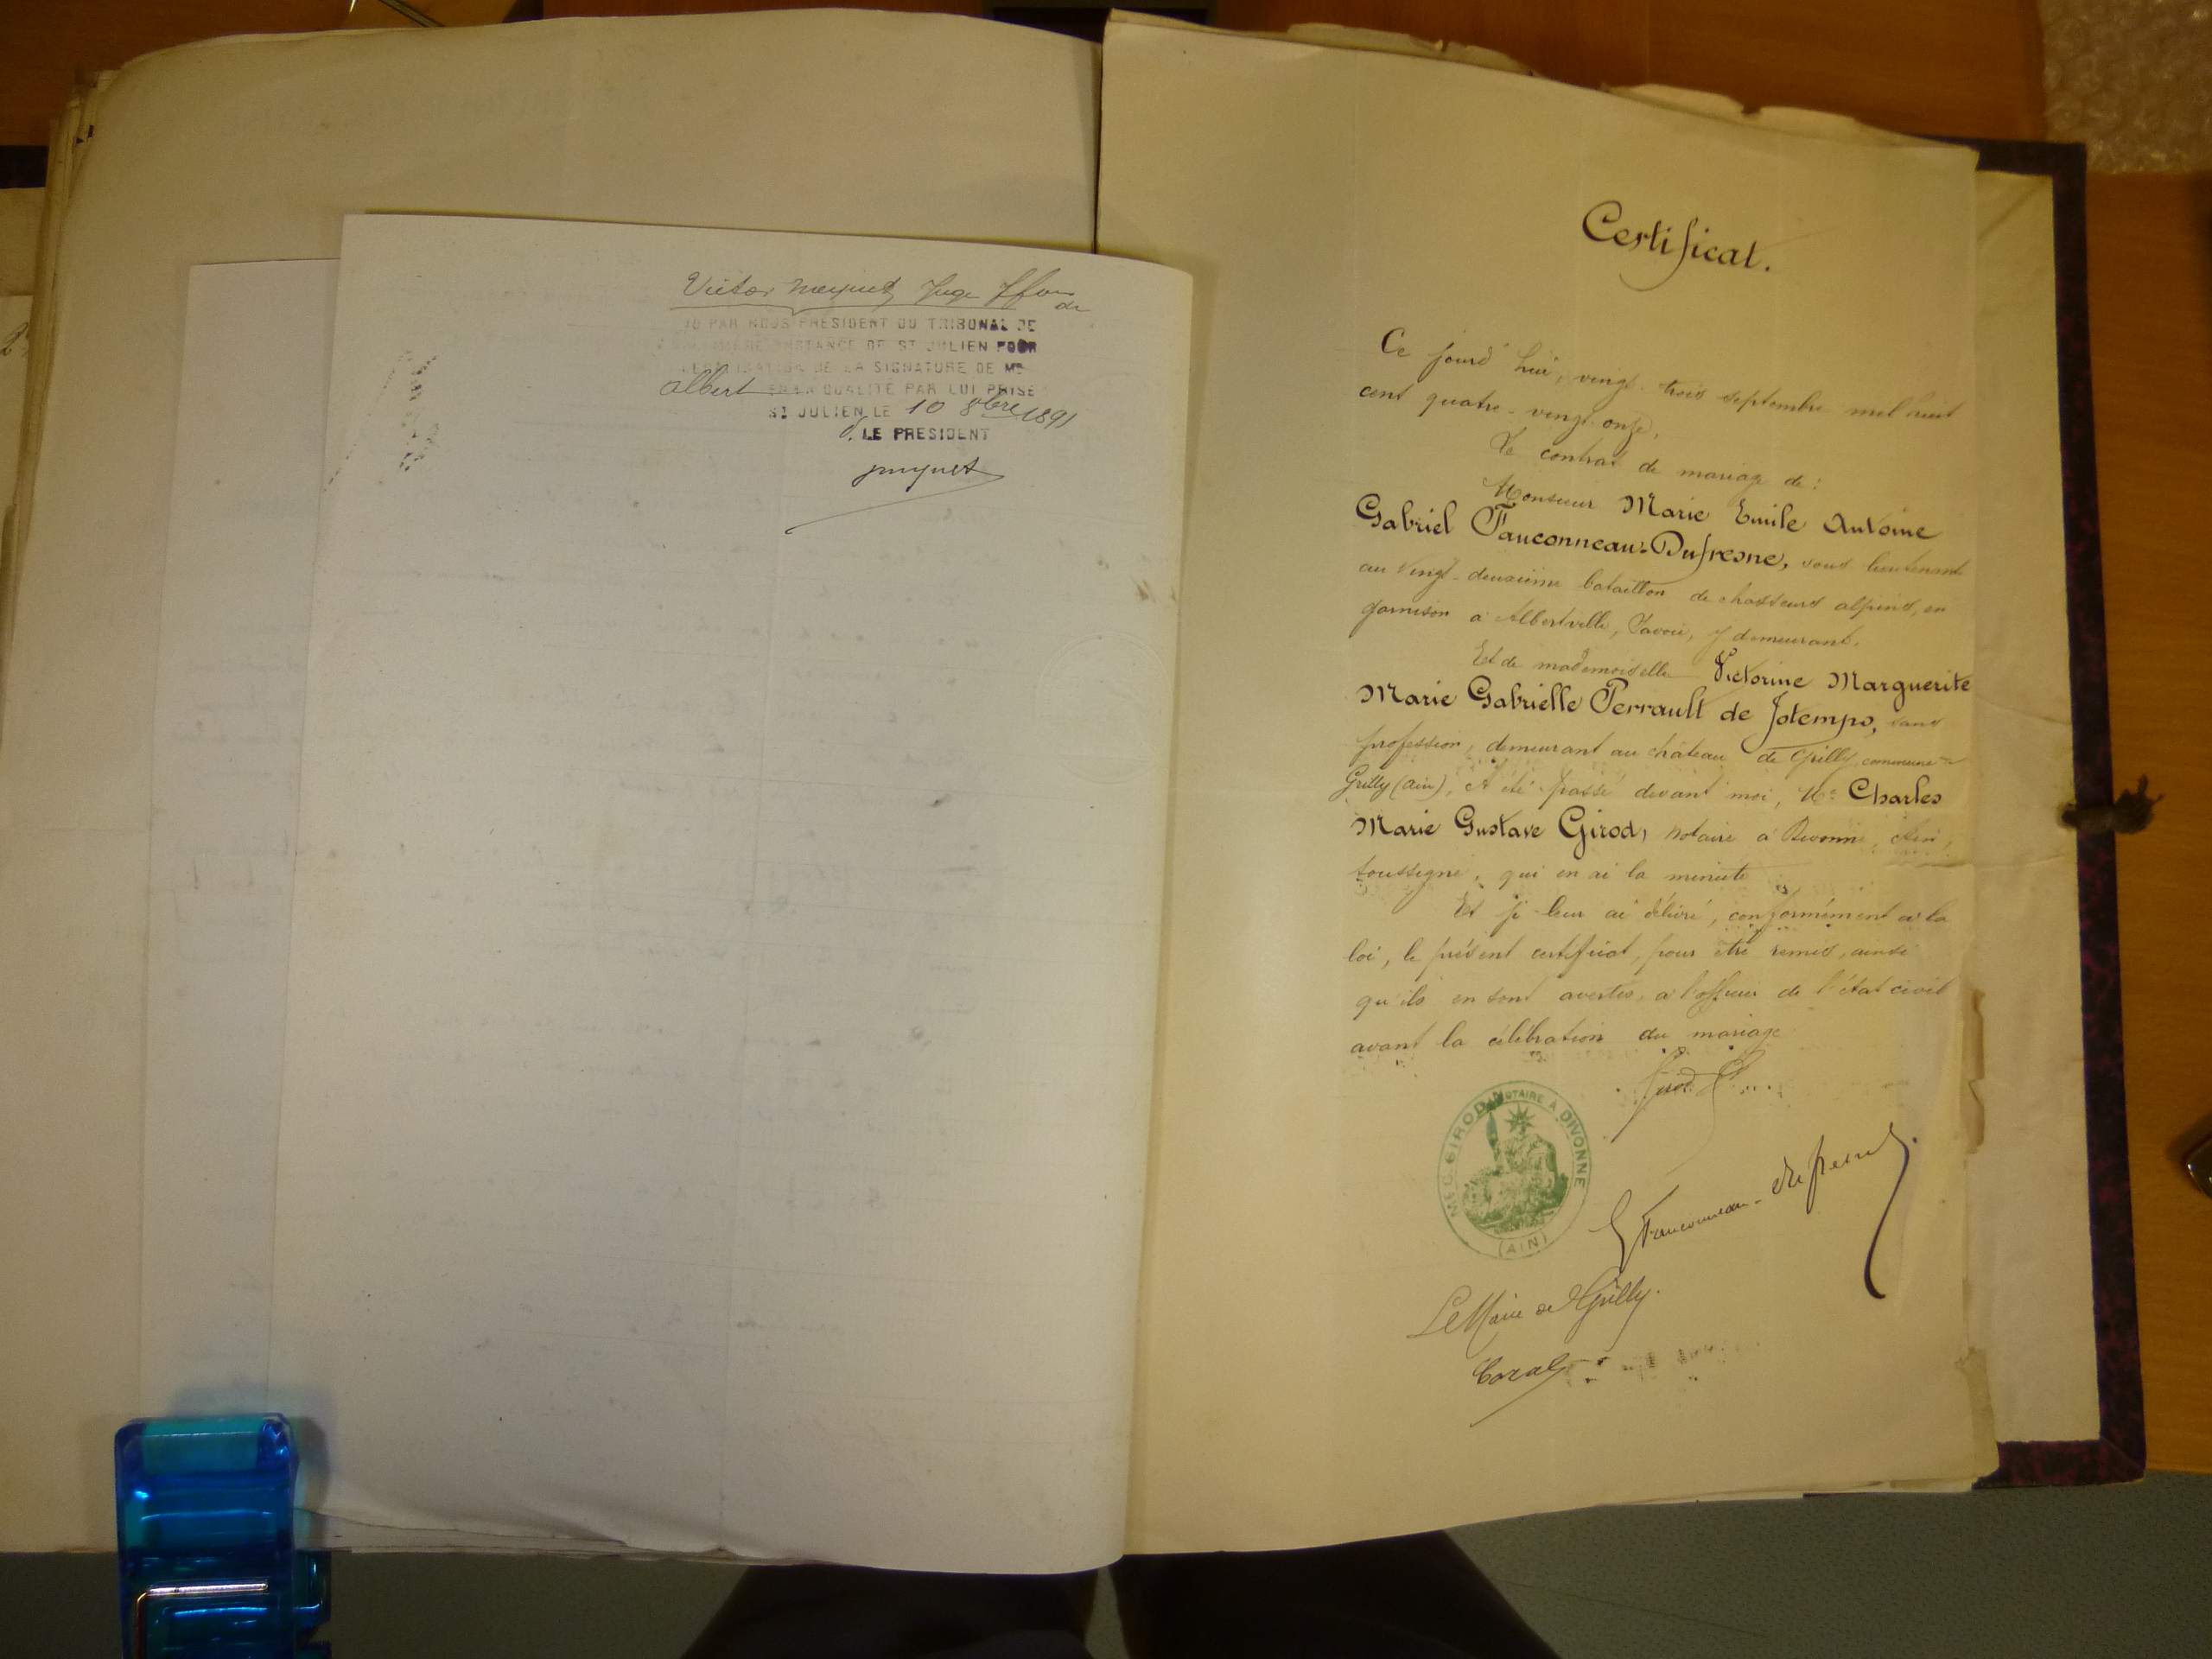 Victor
VU PAR NOUS PRESIDENT DU TRIBUNAL DE
PREMIERE INSTANCE DE ST JULIEN POUR
LEGALISATION DE LA SIGNATURE DE MR
Albert EN LA QUALITÉ PAR LUI PRISE
ST JULIEN LE 10 8bre 1891
LE PRESIDENT
Certificat.
Ce jourd'hui, vingt-trois septembre mil huit
cent quatre-vingt onze,
Le contrat de mariage de :
Monsieur Marie Emile Antoine
Gabriel Fauconneau-Dufresne, sous lieutenant
au vingt-deuxième bataillon de chasseurs alpins, en
garnison à Albertville, Savoie, y demeurant.
Et de mademoiselle Victorine Marguerite
Marie Gabrielle Perrault de Jotemps, sans
profession, demeurant au château de Grilly, commune
Grilly (Ain), A été passé devant moi, Me Charles
Marie Gustave Girod, notaire à Divonne, Ain,
soussigné, qui en ai la minute
Et je leur ai délivré, conformément à la
loi, le présent certificat, pour être remis, ainsi
qu'ils en sont avertis, à l'officier de l'état civil
avant la célébration du mariage
Girod
ME C. GIROD NOTAIRE A DIVONNE
(AIN)
G Fauconneau-Dufresne
Le Maire de Grilly.